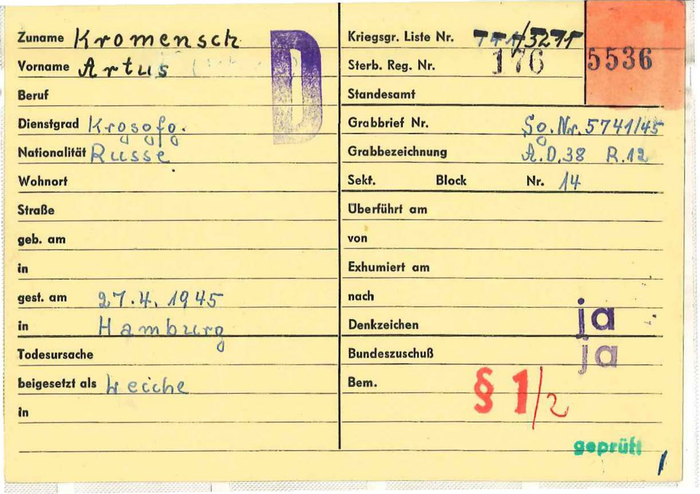 Zuname Kromensch
Vorname Artus
Beruf
Dienstgrad Krgsgfg.
Nationalität Russe
Wohnort
Straße
geb. am
in
gest. am 27.4.1945
in Hamburg
Todesursache
beigesetzt als Leiche
in
D
Kriegsgr. Liste Nr. /3271
5536
Sterb. Reg. Nr. 176
Standesamt
Grabbrief Nr. So.Nr.5741/45
Grabbezeichnung A.D.38 R.12
Sekt. Block Nr. 14
Überführt am
von
Exhumiert am
nach
Denkzeichen ja
Bundeszuschuß ja
Bem. § 1/2
geprüft
1